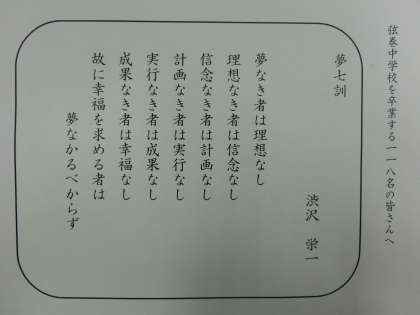 弦巻中学校を卒業する一一八名の皆さんへ
夢七訓
渋沢 栄一
夢なき者は理想なし
理想なき者は信念なし
信念なき者は計画なし
計画なき者は実行なし
実行なき者は成果なし
成果なき者は幸福なし
故に幸福を求める者は
夢なかるべからず